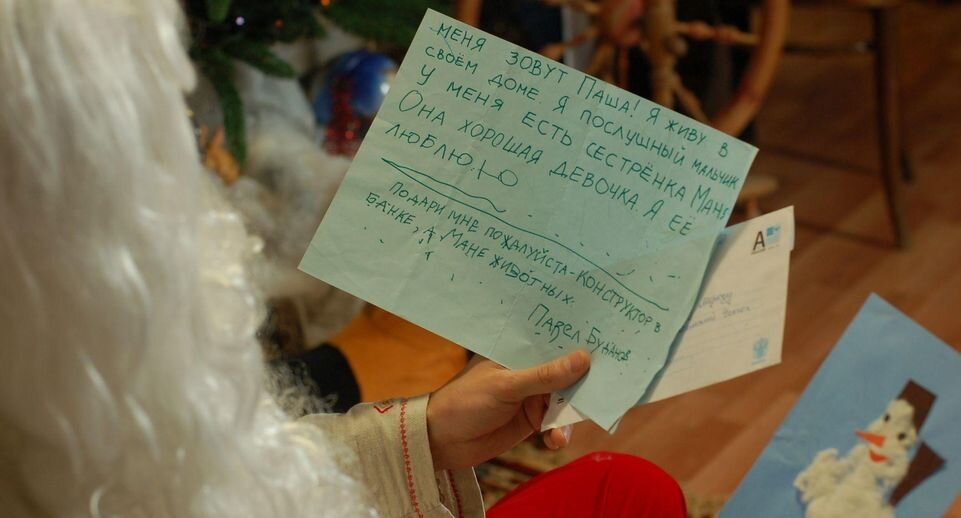 МЕНЯ ЗОВУТ ПАША! Я ЖИВУ В
СВОЁМ ДОМЕ. Я ПОСЛУШНЫЙ МАЛЬЧИК
У МЕНЯ ЕСТЬ СЕСТРЁНКА МАНЯ
ОНА ХОРОШАЯ ДЕВОЧКА. Я ЕЁ
ЛЮБЛЮ. Ю
ПОДАРИ МНЕ ПОЖАЛУЙСТА-КОНСТРУКТОР В
БАНКЕ, А МАНЕ ЖИВОТНЫХ.
ПАВЕЛ БУДАНОВ
А